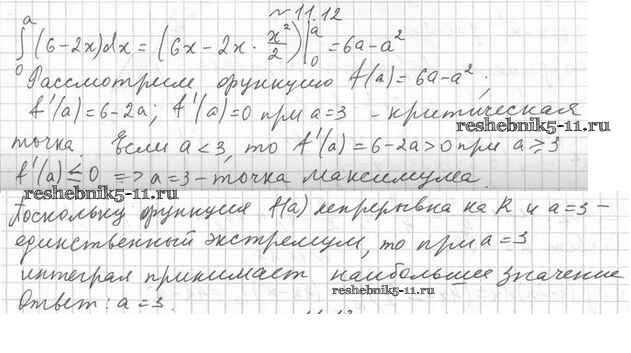 №11.12
∫₀ᵃ (6-2x)dx = (6x-2x·x²/2)|₀ᵃ = 6a-a²
Рассмотрим функцию f(a)=6a-a²;
f'(a)=6-2a; f'(a)=0 при a=3 - критическая
точка. Если a<3, то f'(a)=6-2a>0 при a≥3
reshebnik5-11.ru
f'(a)≤0 => a=3-точка максимума.
reshebnik5-11.ru
Поскольку функция f(a) непрерывна на R и a=3-
единственный экстремум, то при a=3
интеграл принимает наибольшее значение
reshebnik5-11.ru
Ответ: a=3.